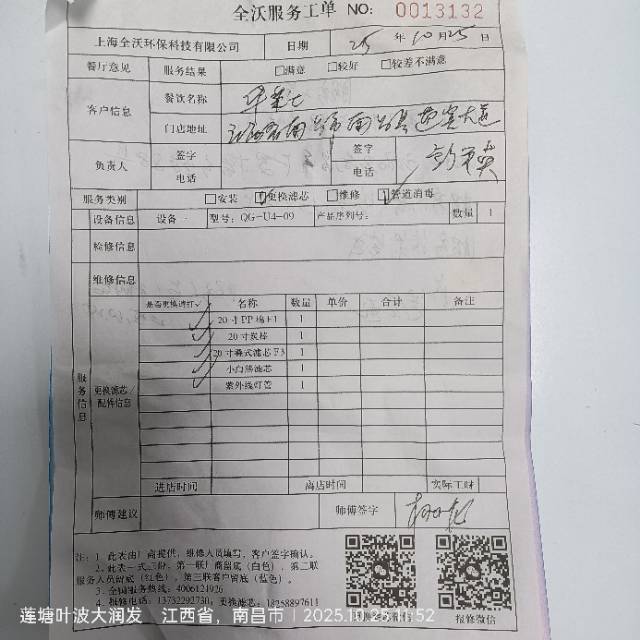 全沃服务工单 NO: 0013132
上海全沃环保科技有限公司 日期 25 年 10 月 25 日
餐厅意见 服务结果 □满意 □较好 □较差不满意
客户信息 餐饮名称 华莱士
门店地址
负责人 签字 签字
电话 电话
服务类别 □安装 □更换滤芯 □维修 □管道消毒
设备信息 设备一 型号: QG-U4-09 产品序列号: 数量 1
检修信息
维修信息
服务信息 更换滤芯/配件信息 是否更换请打✓ 名称 数量 单价 合计 备注
✓ 20寸PP棉F1 1
✓ 20寸炭棒 1
✓ 20寸 滤芯F3 1
✓ 小白熊滤芯 1
✓ 紫外线灯管 1
进店时间 离店时间 实际工时
师傅建议 师傅签字
注: 1. 此表由厂商提供, 维修人员填写, 客户签字确认。
2. 此表一式三份, 第一联厂商留底(白色), 第二联
服务人员留底(红色), 第三联客户留底(蓝色)。
3. 全国服务热线: 4006121926
4. 报修电话: 13732292730, 更换滤芯: 18258897611
报修微信
莲塘叶波大润发 江西省, 南昌市 | 2025.10.25 11:52